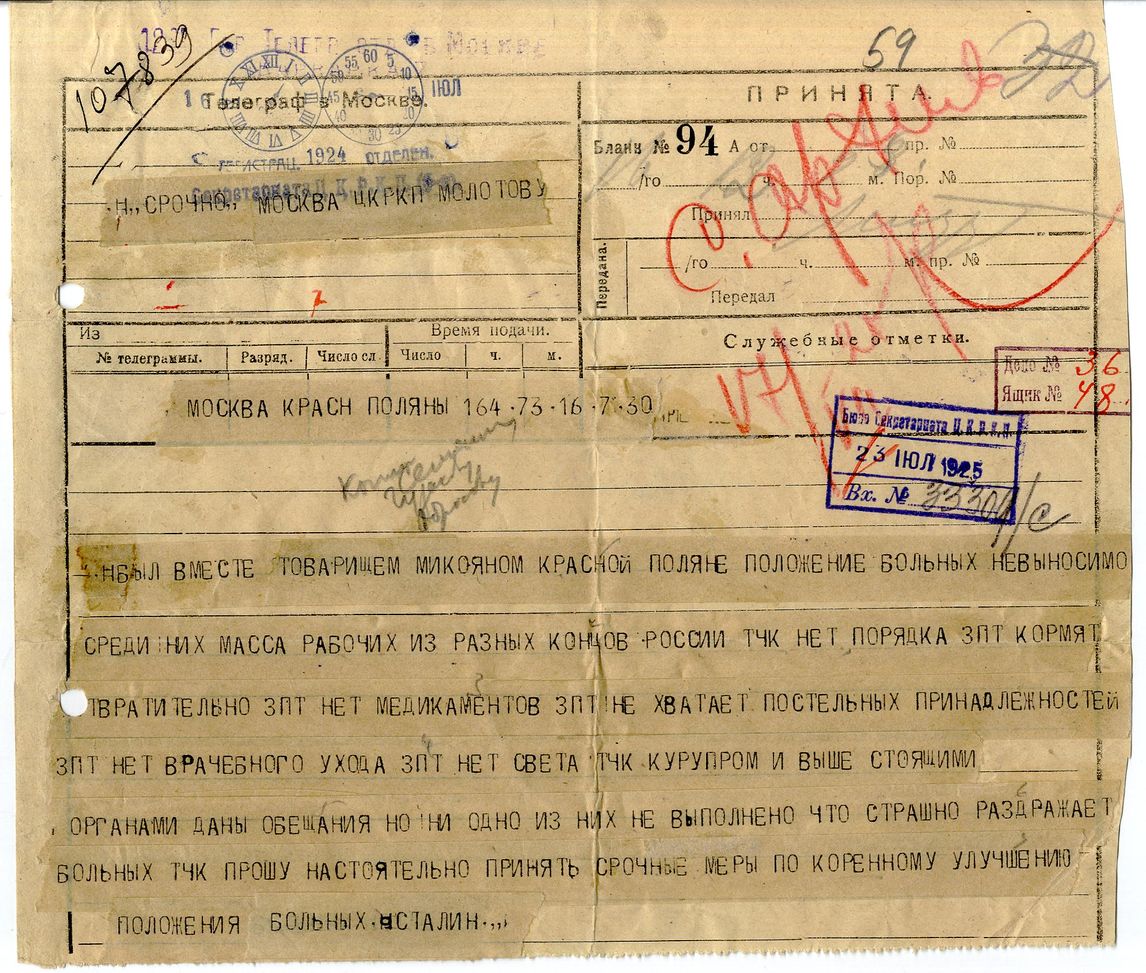 Гор Телегр МОСКВЕ
107839
59
16 ИЮЛ
Телеграф в Москве.
ПРИНЯТА.
РЕГИСТРАЦ. 1924 ОТДЕЛЕН.
Секретариата Ц.К.Р.К.П.
Бланк № 94 А от Спр. №
/го ч. м. Пор. №
.Н„СРОЧНО„ МОСКВА ЦКРКП МОЛОТОВУ
Принял
Передана.
/го ч. м. пр. №
Передал
Из
Время подачи.
Служебные отметки.
№ телеграммы. Разряд. Число сл. Число ч. м.
Дело № 36
Ящик № 48
МОСКВА КРАСН ПОЛЯНЫ 164 .73.16 .7.30
17/
Бюро Секретариата Ц.К.Р.К.П.
23 ИЮЛ 1925
Вх. № 33304/с
НБЫЛ ВМЕСТЕ ТОВАРИЩЕМ МИКОЯНОМ КРАСНОЙ ПОЛЯНЕ ПОЛОЖЕНИЕ БОЛЬНЫХ НЕВЫНОСИМО
СРЕДИ НИХ МАССА РАБОЧИХ ИЗ РАЗНЫХ КОНЦОВ РОССИИ ТЧК НЕТ ПОРЯДКА ЗПТ КОРМЯТ
ТВРАТИТЕЛЬНО ЗПТ НЕТ МЕДИКАМЕНТОВ ЗПТ НЕ ХВАТАЕТ ПОСТЕЛЬНЫХ ПРИНАДЛЕЖНОСТЕЙ
ЗПТ НЕТ ВРАЧЕБНОГО УХОДА ЗПТ НЕТ СВЕТА ТЧК КУРУПРОМ И ВЫШЕ СТОЯЩИМИ
ОРГАНАМИ ДАНЫ ОБЕЩАНИЯ НО НИ ОДНО ИЗ НИХ НЕ ВЫПОЛНЕНО ЧТО СТРАШНО РАЗДРАЖАЕТ
БОЛЬНЫХ ТЧК ПРОШУ НАСТОЯТЕЛЬНО ПРИНЯТЬ СРОЧНЫЕ МЕРЫ ПО КОРЕННОМУ УЛУЧШЕНИЮ
ПОЛОЖЕНИЯ БОЛЬНЫХ.НСТАЛИН.,,,